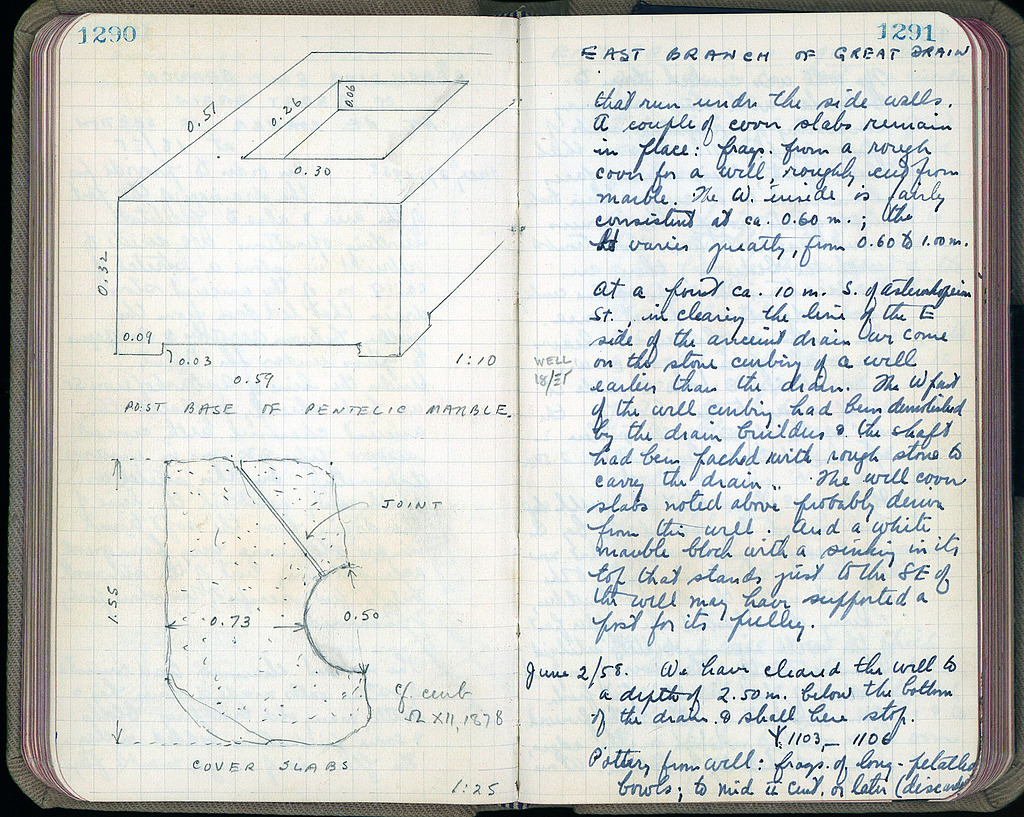 1290
0.51
0.26
0.06
0.30
0.32
0.09
0.03
0.59
1:10
POST BASE OF PENTELIC MARBLE.
JOINT
1.55
0.73
0.50
cf. curb
Ω XII, 1878
COVER SLABS
1:25
1291
EAST BRANCH OF GREAT DRAIN
that run under the side walls.
A couple of cover slabs remain
in place: frags. from a rough
cover for a well, roughly cut from
marble. The W. inside is fairly
consistent at ca. 0.60 m.; the
H varies greatly, from 0.60 to 1.00 m.
At a point ca. 10 m. S. of Asteroskopeion
St., in clearing the line of the E
side of the ancient drain we come
on the stone curbing of a well
earlier than the drain. The W part
of the well curbing had been demolished
by the drain builders & the shaft
had been packed with rough stone to
carry the drain.. The well cover
slabs noted above probably derive
from this well. And a white
marble block with a sinking in its
top that stands just to the SE of
the well may have supported a
post for its pulley.
WELL
June 2/58. We have cleared the well to
a depth of 2.50 m. below the bottom
of the drain & shall here stop.
1103 – 1106
Pottery from well: frags. of long-petalled
bowls; to mid II cent. or later (discard